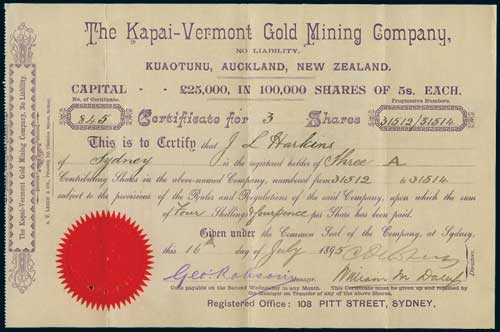 The Kapai-Vermont Gold Mining Company,
NO LIABILITY.
KUAOTUNU, AUCKLAND, NEW ZEALAND.
CAPITAL - - £25,000, IN 100,000 SHARES OF 5s. EACH.
No. of Certificate. Progressive Numbers.
845 Certificate for 3 Shares 31512/31514
This is to Certify that J L Harkins
of Sydney is the registered holder of Three A
Contributing Shares in the above-named Company, numbered from 31512 to 31514
subject to the provisions of the Rules and Regulations of the said Company, upon which the sum
of Four Shillings & fourpence per Share has been paid.
Given under the Common Seal of the Company, at Sydney,
this 16th day of July 1895
Geo Robson Manager. William M Director.
Calls payable on the Second Wednesday in any Month. This Certificate must be given up and renewed by
the Manager on Transfer of any of the above Shares.
Registered Office: 108 PITT STREET, SYDNEY.
The Kapai-Vermont Gold Mining Company, No Liability.